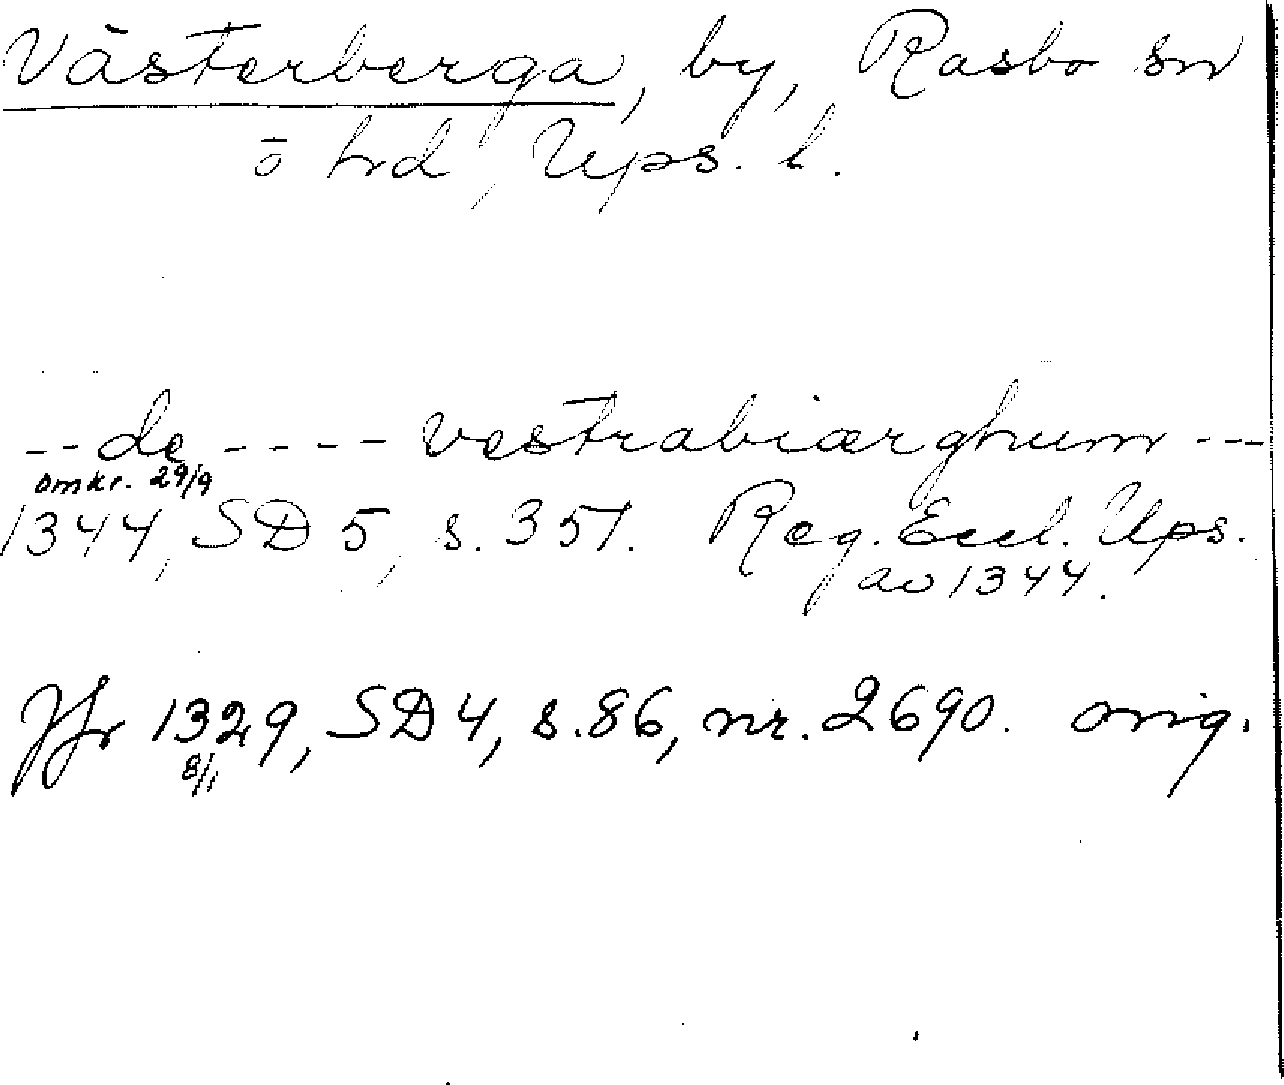 Västerberga, by, Rasbo sn
o hd, Ups. l.
-- de ---- vestrabiærghum ---
omkr. 29/9
1344, SD 5, s. 351. Reg. Eccl. Ups.
av 1344.
Jfr 1329, SD 4, s. 86, nr. 2690. orig.
8/1